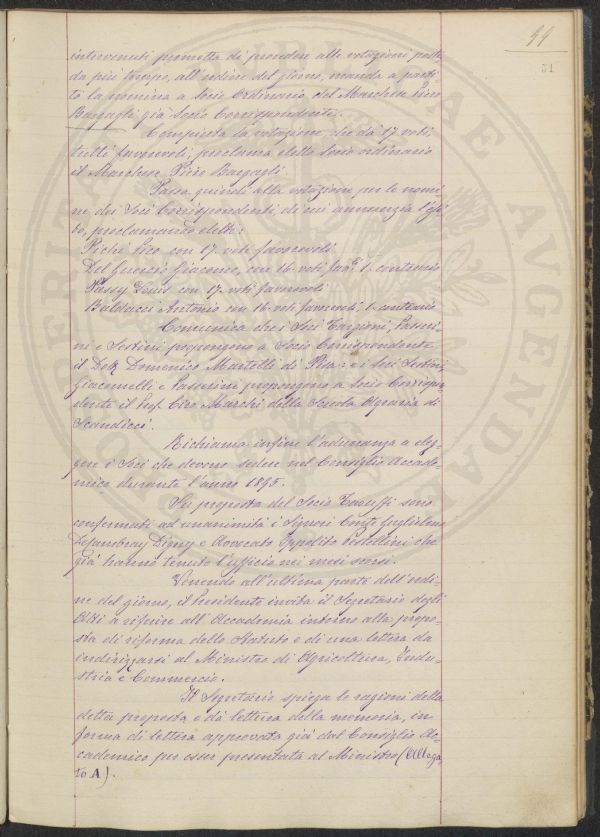 44
51
intervenuti promette di procedere alle votazioni poste
da più tempo, all'ordine del giorno, manda a parti-
to la nomina a Socio Ordinario del Marchese Piero
Bargagli già Socio Corrispondente.
Compiuta la votazione, che dà 17 voti,
tutti favorevoli, proclama eletto Socio ordinario
il Marchese Piero Bargagli.
Passa quindi alla votazione per le nomi-
ne dei Soci Corrispondenti, di cui annunzia l'esi-
to, proclamando eletti:
Pichi Pico con 17. voti favorevoli
Del Guercio Giacomo, con 16. voti fav.i 1. contrario
Passy Louis con 17. voti favorevoli
Baldacci Antonio con 16. voti favorevoli, 1. contrario
Comunica che i Soci Targioni, Passeri-
ni e Sestini propongono a Socio Corrispondente
il Dott. Domenico Martelli di Pisa: e i Soci Sestini,
Giacomelli e Passerini propongono a Socio Corrispon-
dente il Prof. Ciro Marchi della Scuola Agraria di
Scandicci.
Richiama infine l'adunanza a eleg-
gere i Soci che devono sedere nel Consiglio Accade-
mico durante l'anno 1895.
Su proposta del Socio Taruffi sono
confermati ad unanimità i Signori Conte Guglielmo
De Cambray Digny e Avvocato Ippolito Pestellini che
già hanno tenuto l'ufficio nei mesi scorsi.
Venendo all'ultima parte dell'ordi-
ne del giorno, il Presidente invita il Segretario degli
Atti a riferire all'Accademia intorno alla propo-
sta di riforma dello Statuto e di una lettera da
indirizzarsi al Ministro di Agricoltura, Indu-
stria e Commercio.
Il Segretario spiega le ragioni della
detta proposta e dà lettura della memoria, in
forma di lettera approvata già dal Consiglio Ac-
cademico per esser presentata al Ministro (Allega-
to A).